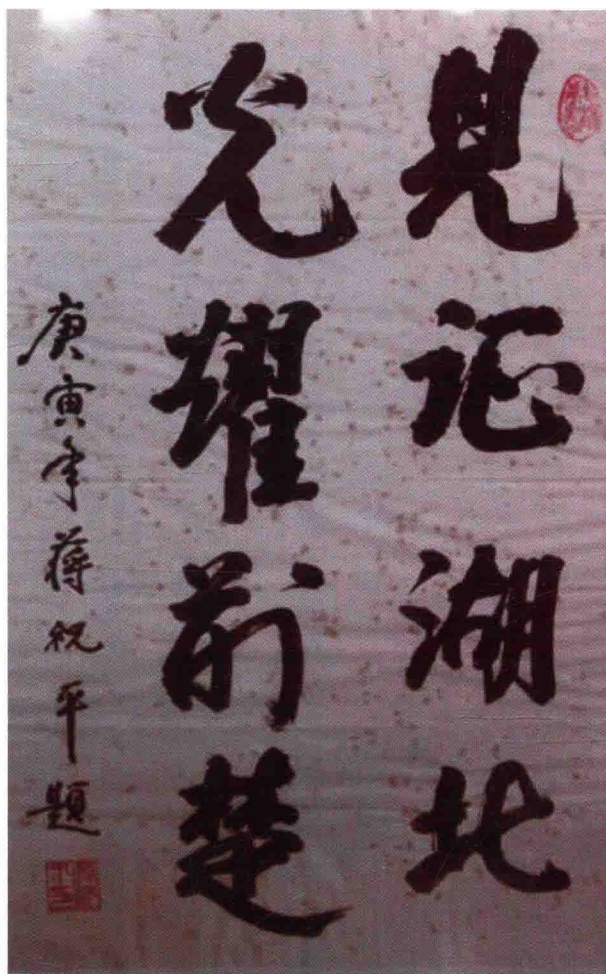 见证湖北
光耀荆楚
庚寅年蒋祝平题